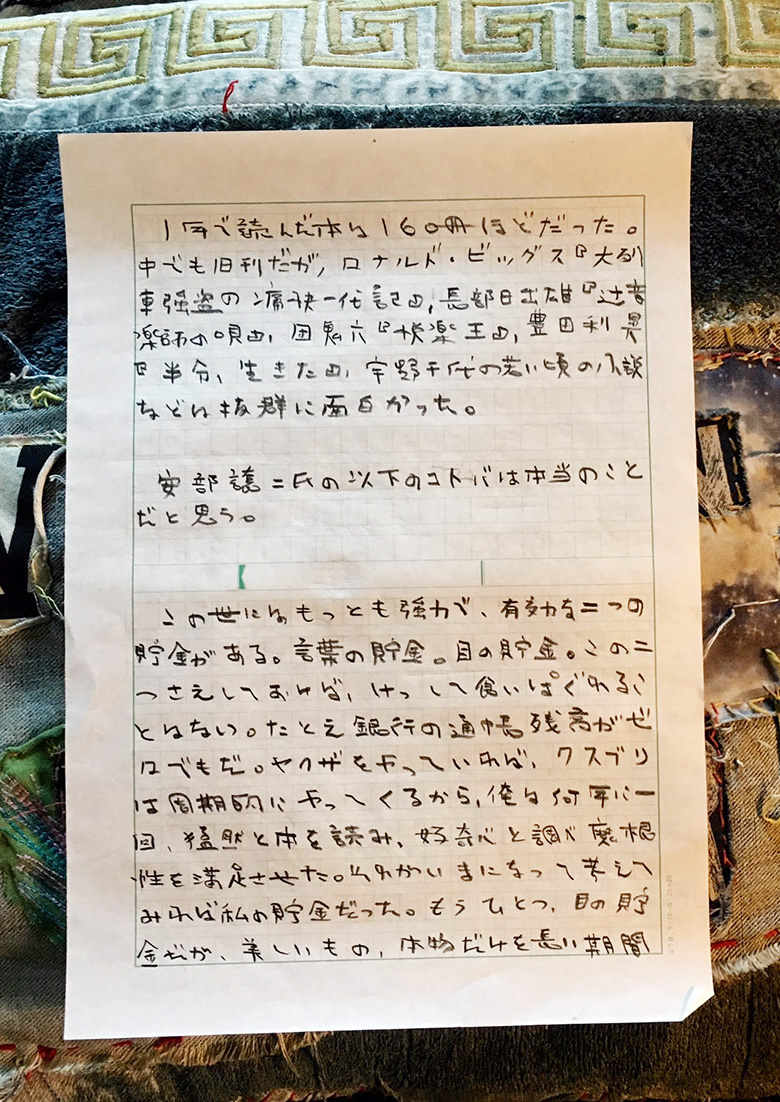 1年で読んだ本は160冊ほどだった。
中でも旧刊だが、ロナルド・ビッグス『大列
車強盗の痛快一代記』、長部日出雄『辻音
楽師の唄』、団鬼六『快楽王』、豊田利晃
『半分、生きた』、宇野千代の若い頃の小説
などは抜群に面白かった。
安部譲二氏の以下のコトバは本当のこと
だと思う。
この世にはもっとも強力で、有効な二つの
貯金がある。言葉の貯金。目の貯金。この二
つさえしておけば、けっして食いぱぐれるこ
とはない。たとえ銀行の通帳残高がゼ
ロでもだ。ヤクザをやっていれば、クスブリ
は周期的にやってくるから、俺は何年に一
回、猛然と本を読み、好奇心と調べ魔根
性を満足させた。それがいまになって考えて
みれば私の貯金だった。もうひとつ、目の貯
金だが、美しいもの、本物だけを長い期間